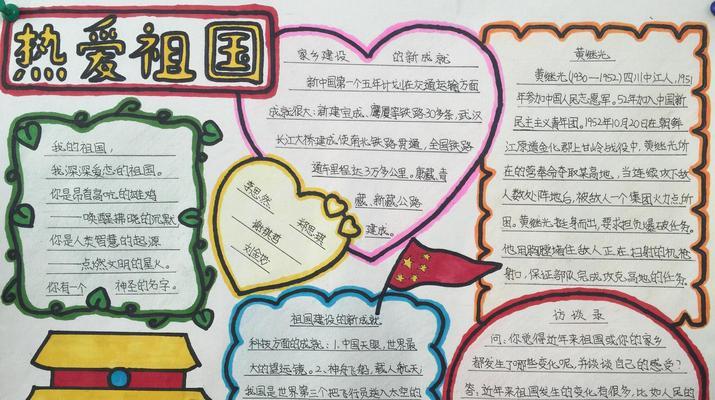 热爱祖国
我的祖国，
我深深爱恋的祖国。
你是昂首高吭的雄鸡
——唤醒拂晓的沉默
你是人类智慧的起源
——点燃文明的星火。
你有一个 神圣的名字。
家乡建设 的新成就
新中国第一个五年计划在交通运输方面
成就很大：新建宝成、鹰厦等铁路30多条，武汉
长江大桥建成使南北铁路贯通，全国铁路
通车里程达3万多公里。康藏、青
藏、新藏公路
建成。
李思然
郑思琪
黄继光
黄继光(1930—1952)四川中江人，1951
年参加中国人民志愿军。52年加入中国新
民主主义青年团。1952年10月20日在朝鲜
江原道金化郡上甘岭战役中，黄继光所
在的营奉命夺取某高地，当连续攻下敌
人数处阵地后，被敌人一个集团火力点所
困。黄继光挺身而出，要求担负爆破任务。
他用胸膛堵住敌人正在扫射的机枪
射口，保证部队完成攻克高地的任务。
祖国建设的新成就。
科技方面的成就：1.中国天眼，世界最
大的望远镜。2、神舟飞船，载人航天；
我国是世界第三个把飞行员送入太空的
访谈录
问：你觉得近年来祖国或你的家乡
都发生了哪些变化呢，并谈谈自己的感受？
答：近年来祖国发生的变化有很多，比如人民的